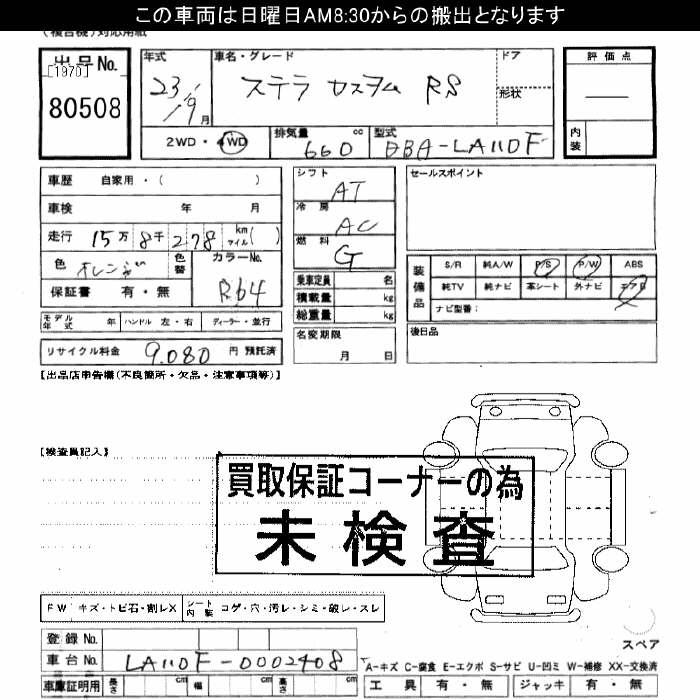 この車両は日曜日AM8:30からの搬出となります
(複合機)対応用紙
出品No.
[1970]
80508
年式
23/9月
車名・グレード
ステラ カスタム RS
ドア
形状
評価点
内装
2WD・4WD
排気量 cc
660
型式
DBA-LA110F
車歴 自家用・( )
車検 年 月
走行 15万8千278 km マイル( )
色 オレンジ
色替
カラーNo.
R64
保証書 有・無
モデル年式 年 ハンドル 左・右 ディーラー・並行
リサイクル料金 9.080 円 預託済
シフト
AT
冷房
AC
燃料
G
乗車定員 名
積載量 kg
総重量 kg
名変期限
月 日
セールスポイント
装備品
S/R 純A/W P/S P/W ABS
純TV 純ナビ 革シート 外ナビ エアB
ナビ型番:
後日品
【出品店申告欄(不良箇所・欠品・注意事項等)】
【検査員記入】
買取保証コーナーの為
未検査
FW キズ・トビ石・割レX
シート内装 コゲ・穴・汚レ・シミ・破レ・スレ
登録No.
車台No. LA110F-0002408
車庫証明用 長さ cm 幅 cm 高さ cm
スペア
A-キズ C-腐食 E-エクボ S-サビ U-凹ミ W-補修 XX-交換済
工具 有・無 ジャッキ 有・無